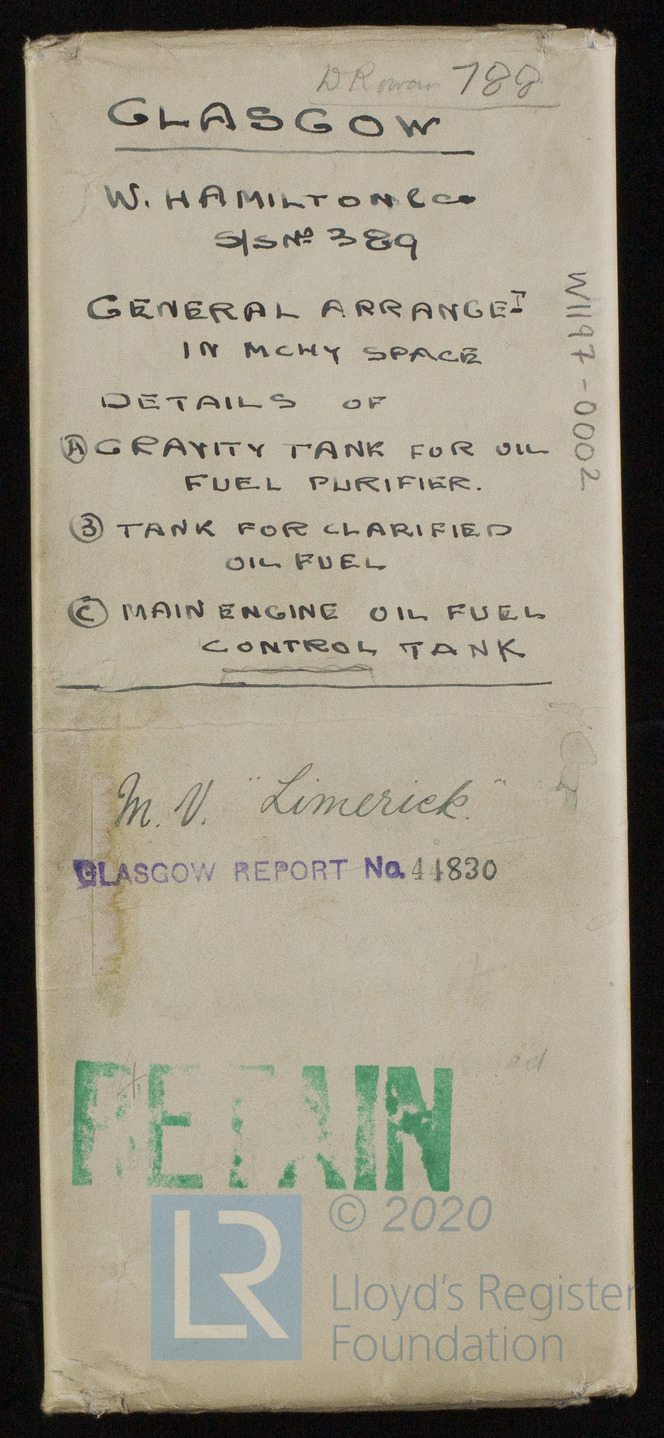 D Rowan 788
GLASGOW
W. HAMILTON & Co
S/S Nº 389
GENERAL ARRANGET
IN MCHY SPACE
DETAILS OF
A GRAVITY TANK FOR OIL
FUEL PURIFIER.
B TANK FOR CLARIFIED
OIL FUEL
C MAIN ENGINE OIL FUEL
CONTROL TANK
W1197-0002
M. V. "Limerick."
GLASGOW REPORT No. 44830
RETAIN
LR
© 2020
Lloyd's Register
Foundation